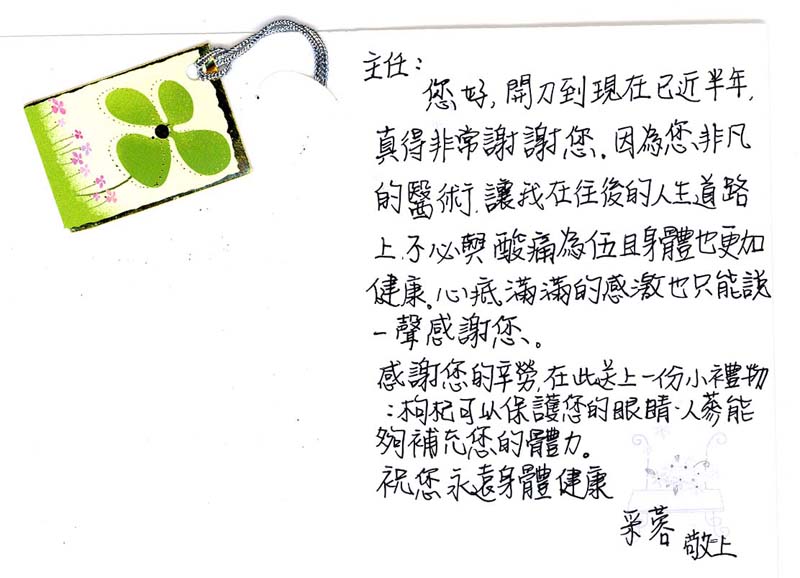 主任：
您好，開刀到現在已近半年，
真得非常謝謝您。因為您、非凡
的醫術，讓我在往後的人生道路
上，不必與酸痛為伍且身體也更加
健康。心底滿滿的感激也只能說
一聲感謝您、。
感謝您的辛勞，在此送上一份小禮物
：枸杞可以保護您的眼睛、人蔘能
夠補充您的體力。
祝您永遠身體健康
采蓉
敬上